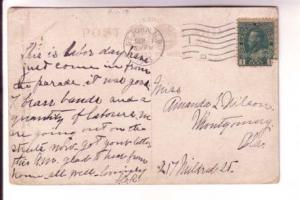 POST
This is labor day have
just come in from
the parade, it was good
7 brass bands and a
quantity of labourers, we
are going out on the
now, got your letter
this A.M. glad to hear from
home, all well. Lovingly
Miss
Amanda L. Wilson
Montgomery
Ala.
217 Mildred St.
1